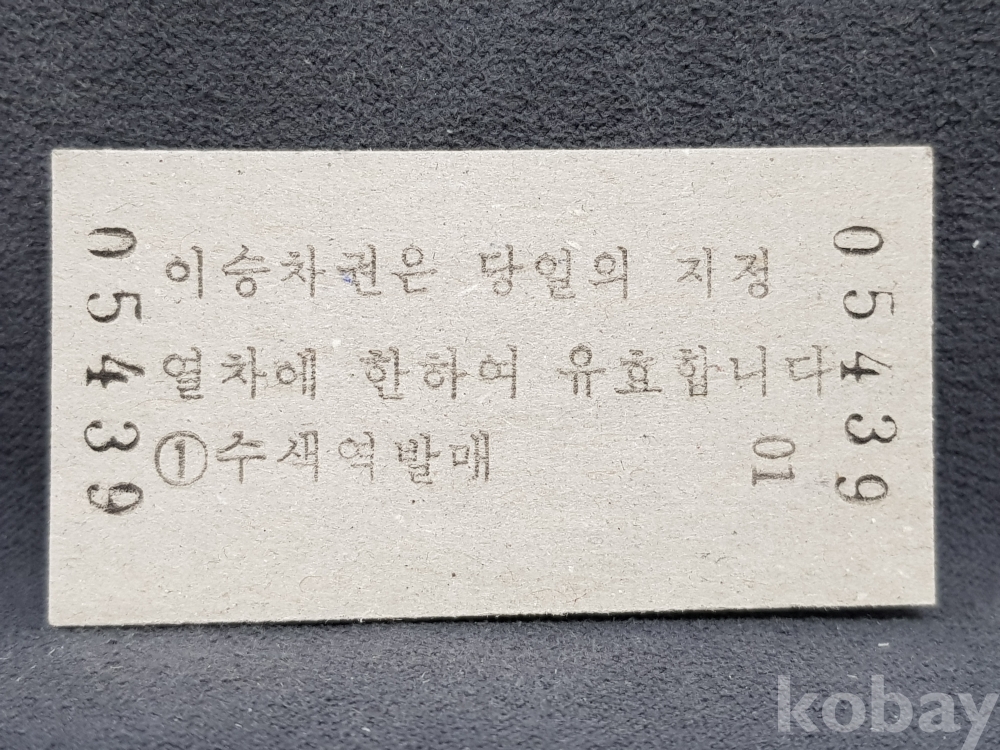 05439
이승차권은 당일의 지정
열차에 한하여 유효합니다
①수색역발매
01
05439
kobay